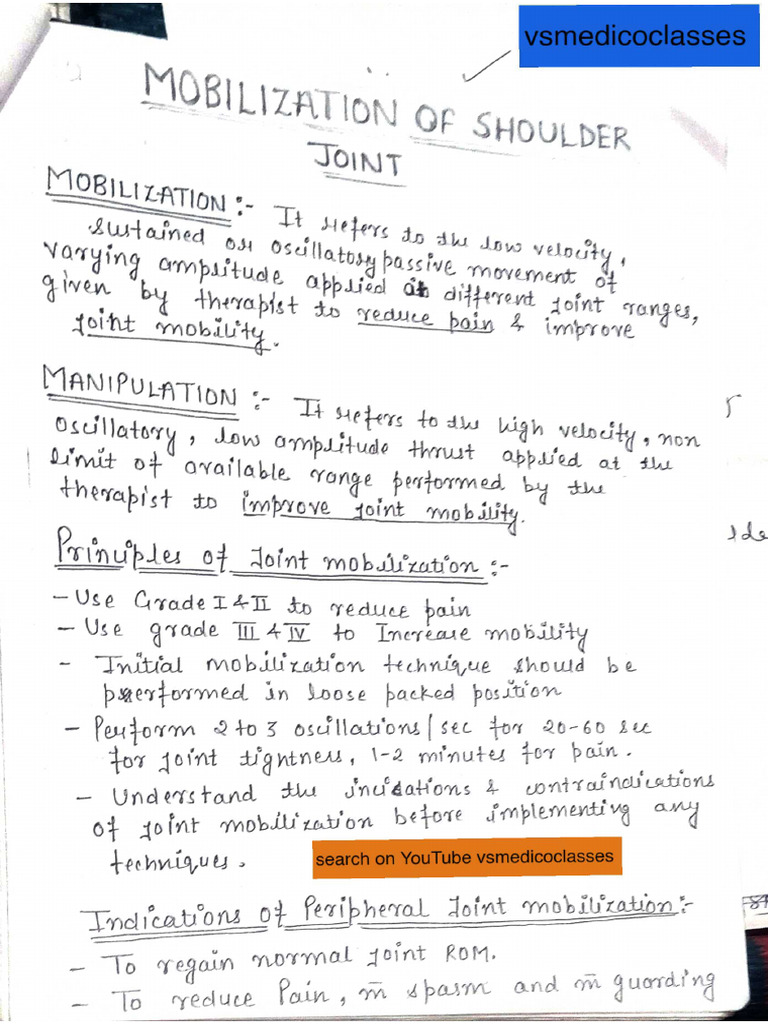 vsmedicoclasses
MOBILIZATION OF SHOULDER
JOINT
MOBILIZATION :- It refers to the low velocity,
sustained or oscillatory passive movement of
varying amplitude applied at different joint ranges,
given by therapist to reduce pain & improve
joint mobility.
MANIPULATION :- It refers to the high velocity, non
oscillatory, low amplitude thrust applied at the
limit of available range performed by the
therapist to improve joint mobility.
Principles of Joint mobilization :-
- Use Grade I & II to reduce pain
- Use grade III & IV to Increase mobility
- Initial mobilization technique should be
performed in loose packed position
- Perform 2 to 3 oscillations/sec for 20-60 sec
for joint tightness, 1-2 minutes for pain.
- Understand the incidations & contraindications
of joint mobilization before implementing any
techniques.
search on YouTube vsmedicoclasses
Indications of Peripheral Joint mobilization :-
- To regain normal joint ROM.
- To reduce Pain, m̄ spasm and m̄ guarding